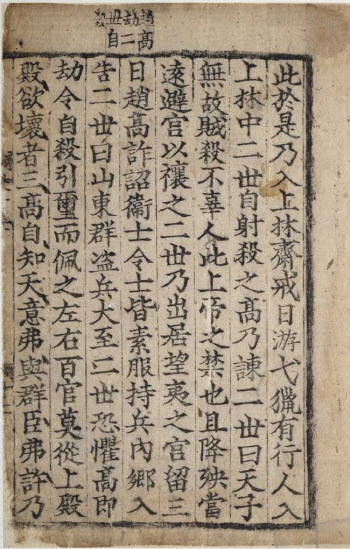 趙高
劫二
世自
殺
此於是乃入上林齋戒日游弋獵有行人入
上林中二世自射殺之高乃諫二世曰天子
無故賊殺不辜人此上帝之禁也且降殃當
遠避宫以禳之二世乃出居望夷之宫留三
日趙高詐詔衛士令士皆素服持兵內鄉入
告二世曰山東群盗兵大至二世恐懼高即
劫令自殺引璽而佩之左右百官莫從上殿
殿欲壞者三高自知天意弗與群臣弗許乃